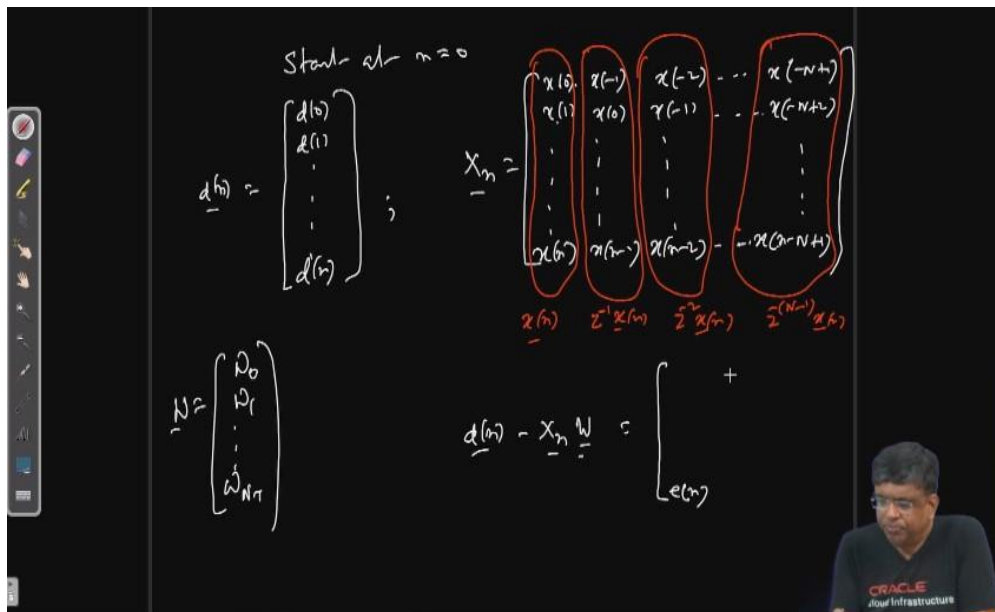 Start at n=0
d(n) = [ d(0) d(1) ⋮ d(n) ] ;
X_n = [ x(0) x(-1) x(-2) ... x(-N+1)
x(1) x(0) x(-1) .... x(-N+2)
⋮ ⋮ ⋮ ⋮
x(n) x(n-1) x(n-2) - ... x(n-N+1) ]
x(n) z^-1 x(n) z^-2 x(n) z^-(N-1) x(n)
W = [ W_0 W_1 ⋮ W_N-1 ]
d(n) - X_n W = [ + e(n)
ORACLE
Cloud Infrastructure